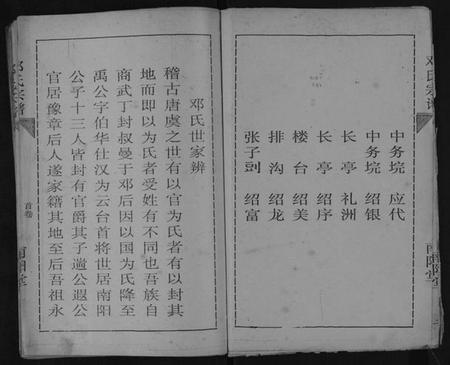 邓氏宗谱
中务垸 应代
中务垸 绍银
长亭 礼洲
长亭 绍序
楼台 绍美
排沟 绍龙
张子剅 绍富
南阳堂
邓氏世家辨
稽古唐虞之世有以官为氏者有以封其
地而即以为氏者受姓有不同也吾族自
商武丁封叔曼于邓后因以国为氏降至
禹公字伯华仕汉为云台首将世居南阳
公子十三人皆封有官爵其子遹公遐公
官居豫章后人遂家籍其地至后吾祖永
邓氏宗谱
首卷
南阳堂